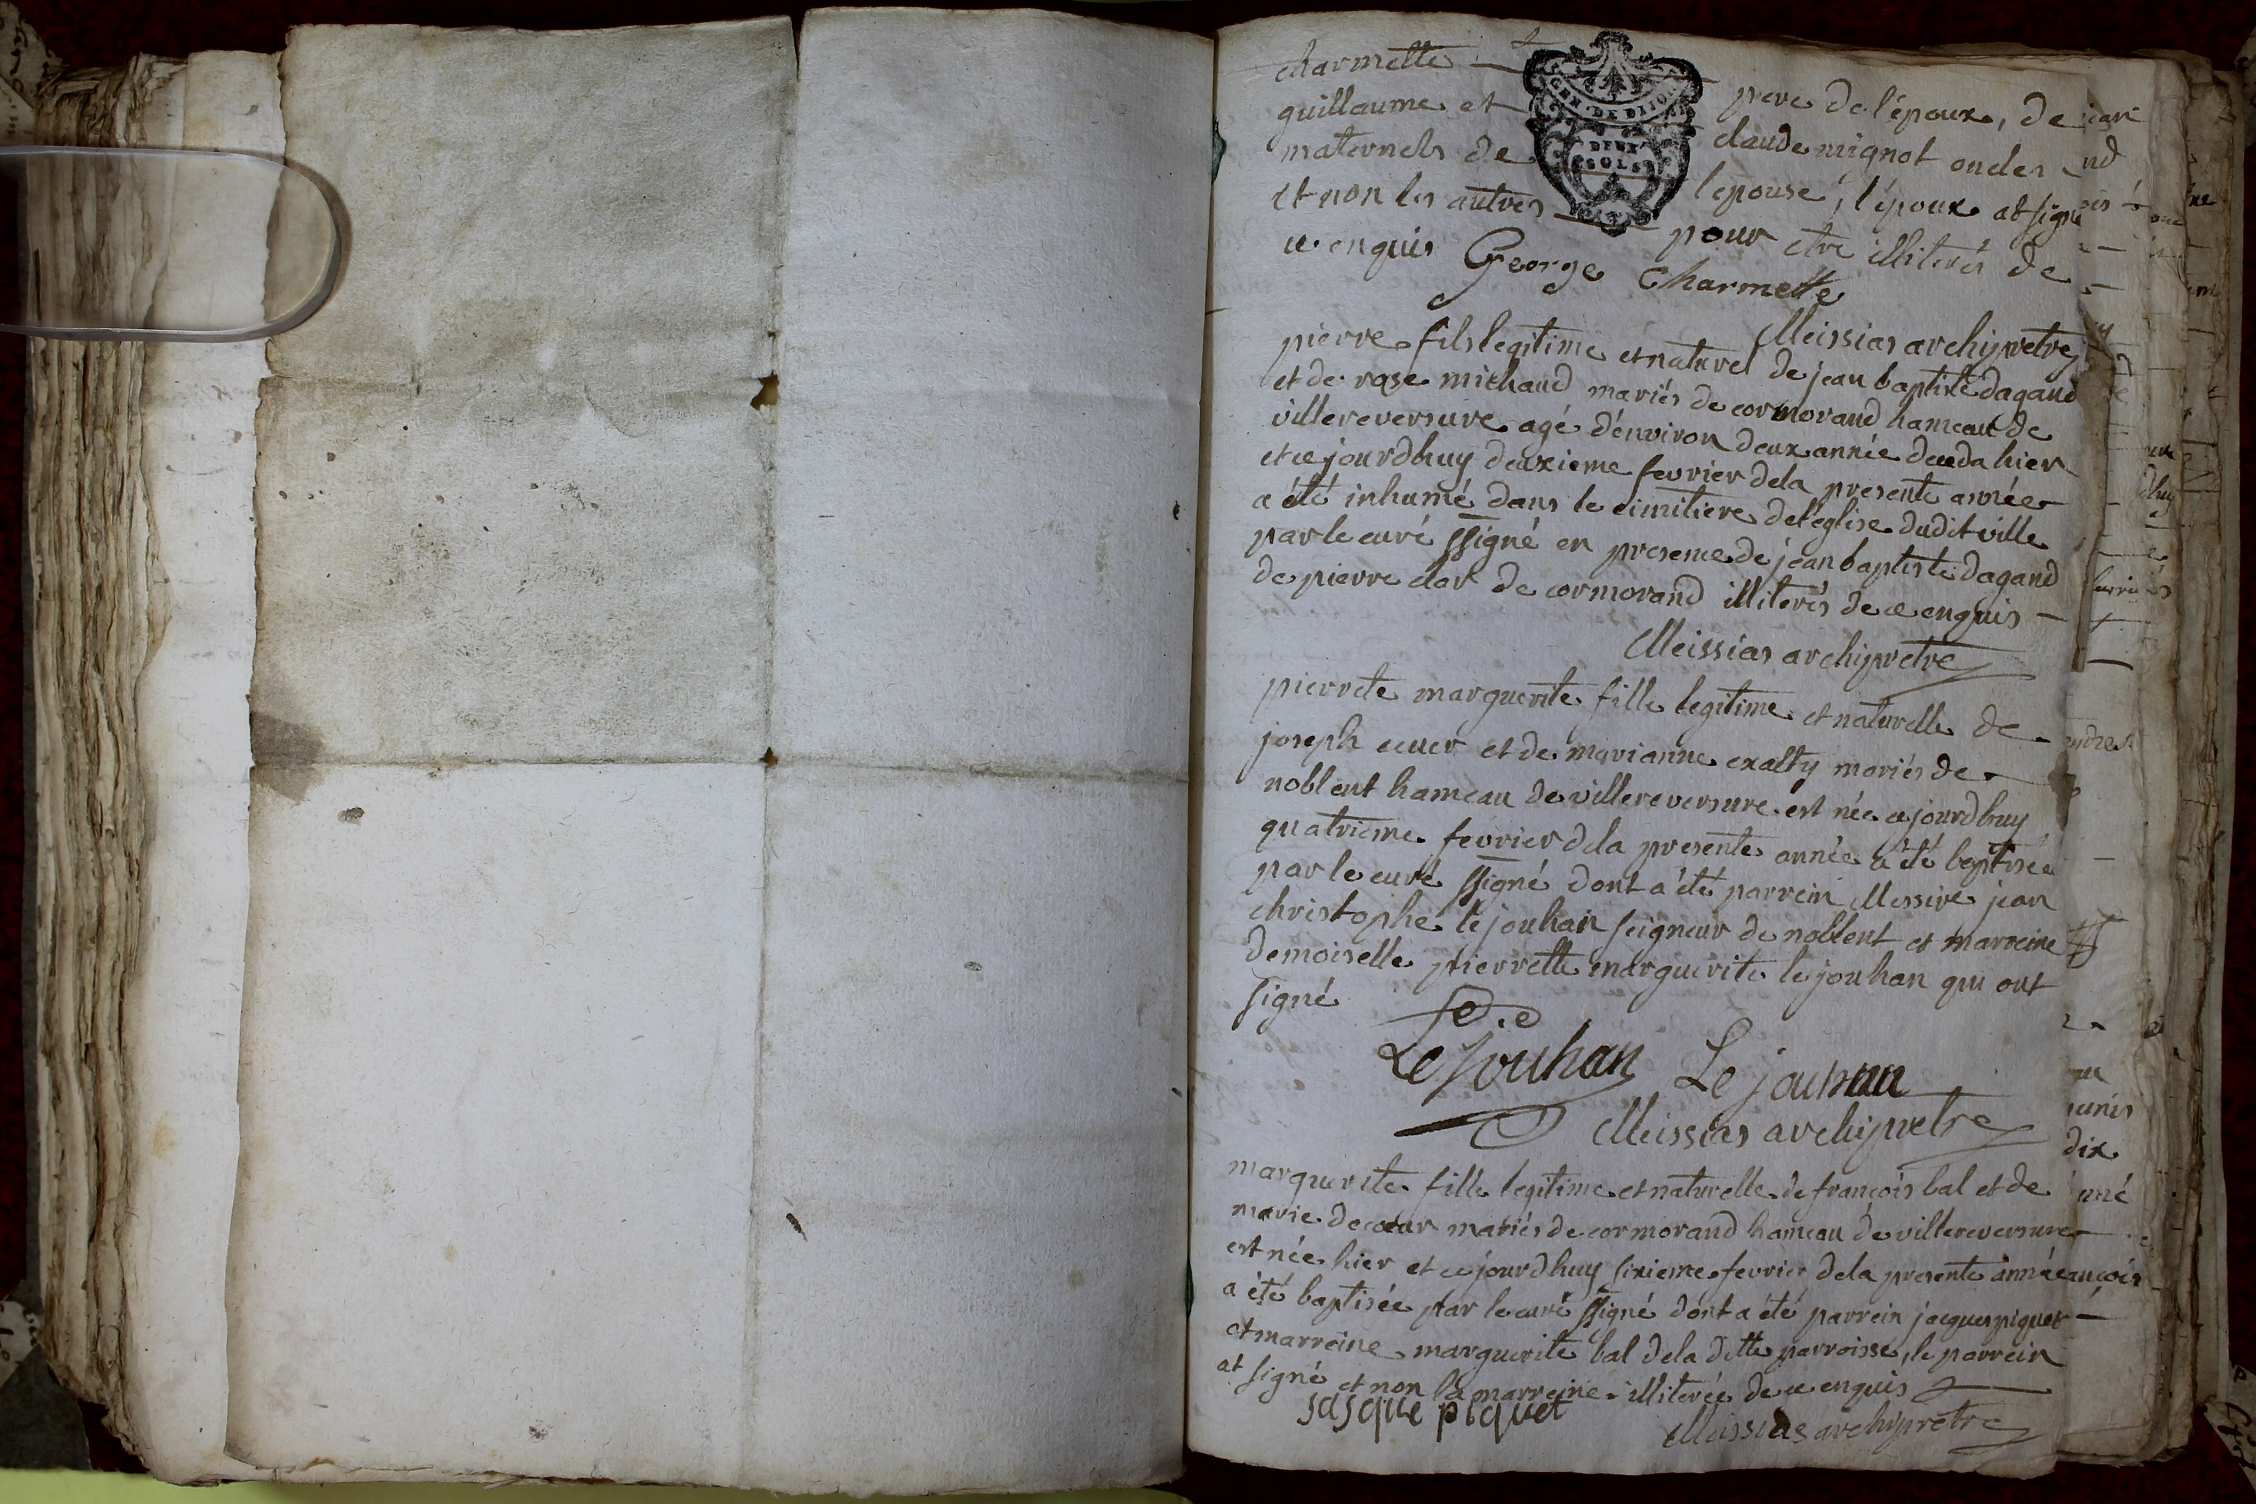 charmette père de l'époux, de
guillaume et claude mignot oncles
maternels de l'epouse, l'époux at signé
et non les autres pour etre illiterés de
ce enquis George Charmette
GEN. DE DIJON
DEUX SOLS
Meissias archipretre
pierre fils legitime et naturel de jean baptiste dagand
et de rose michaud mariés de cormorand hameau de
villereversure agé d'environ deux année deceda hier
et ce jourdhuy deuxieme fevrier dela presente année
a été inhumé dans le cimitiere de l'église dudit ville
par le curé ssigné en presence de jean baptiste dagand
de pierre clar de cormorand illiterés de ce enquis
Meissias archiprêtre
pierrete marguerite fille legitime et naturelle de
joseph ecuer et de marianne exalty mariés de
noblent hameau de villereversure est née cejourdhuy
quatrieme fevrier dela presente année a été baptisée
par le curé ssigné dont a été parrein Messire jean
christophe le jouhan seigneur de noblent et marreine
demoiselle pierrette marguerite le jouhan qui ont
signé
Le Jouhan Le jouhan
Meissias archipretre
marguerite fille legitime et naturelle de françois bal et de
marie decoeur mariés de cormorand hameau de villereversure
est née hier et cejourdhuy sixieme fevrier dela presente année
a été baptisée par le curé ssigné dont a été parrein jacques piquet
et marreine marguerite bal dela ditte parroisse, le parrein
at signé et non la marreine illiterée de ce enquis
jasque piquet
Meissias archiprêtre